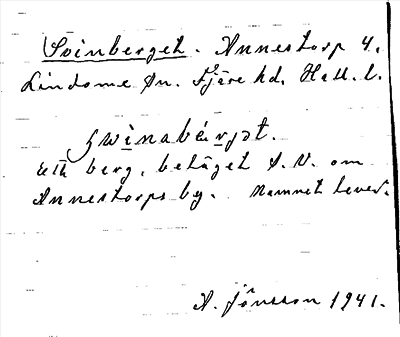 Svinberget. Annestorp 4,
Lindome sn. Fjäre hd, Hall. l.
swinabärjət.
Ett berg, beläget S.V. om
Annestorps by. Namnet lever.
A. Jönsson 1941.